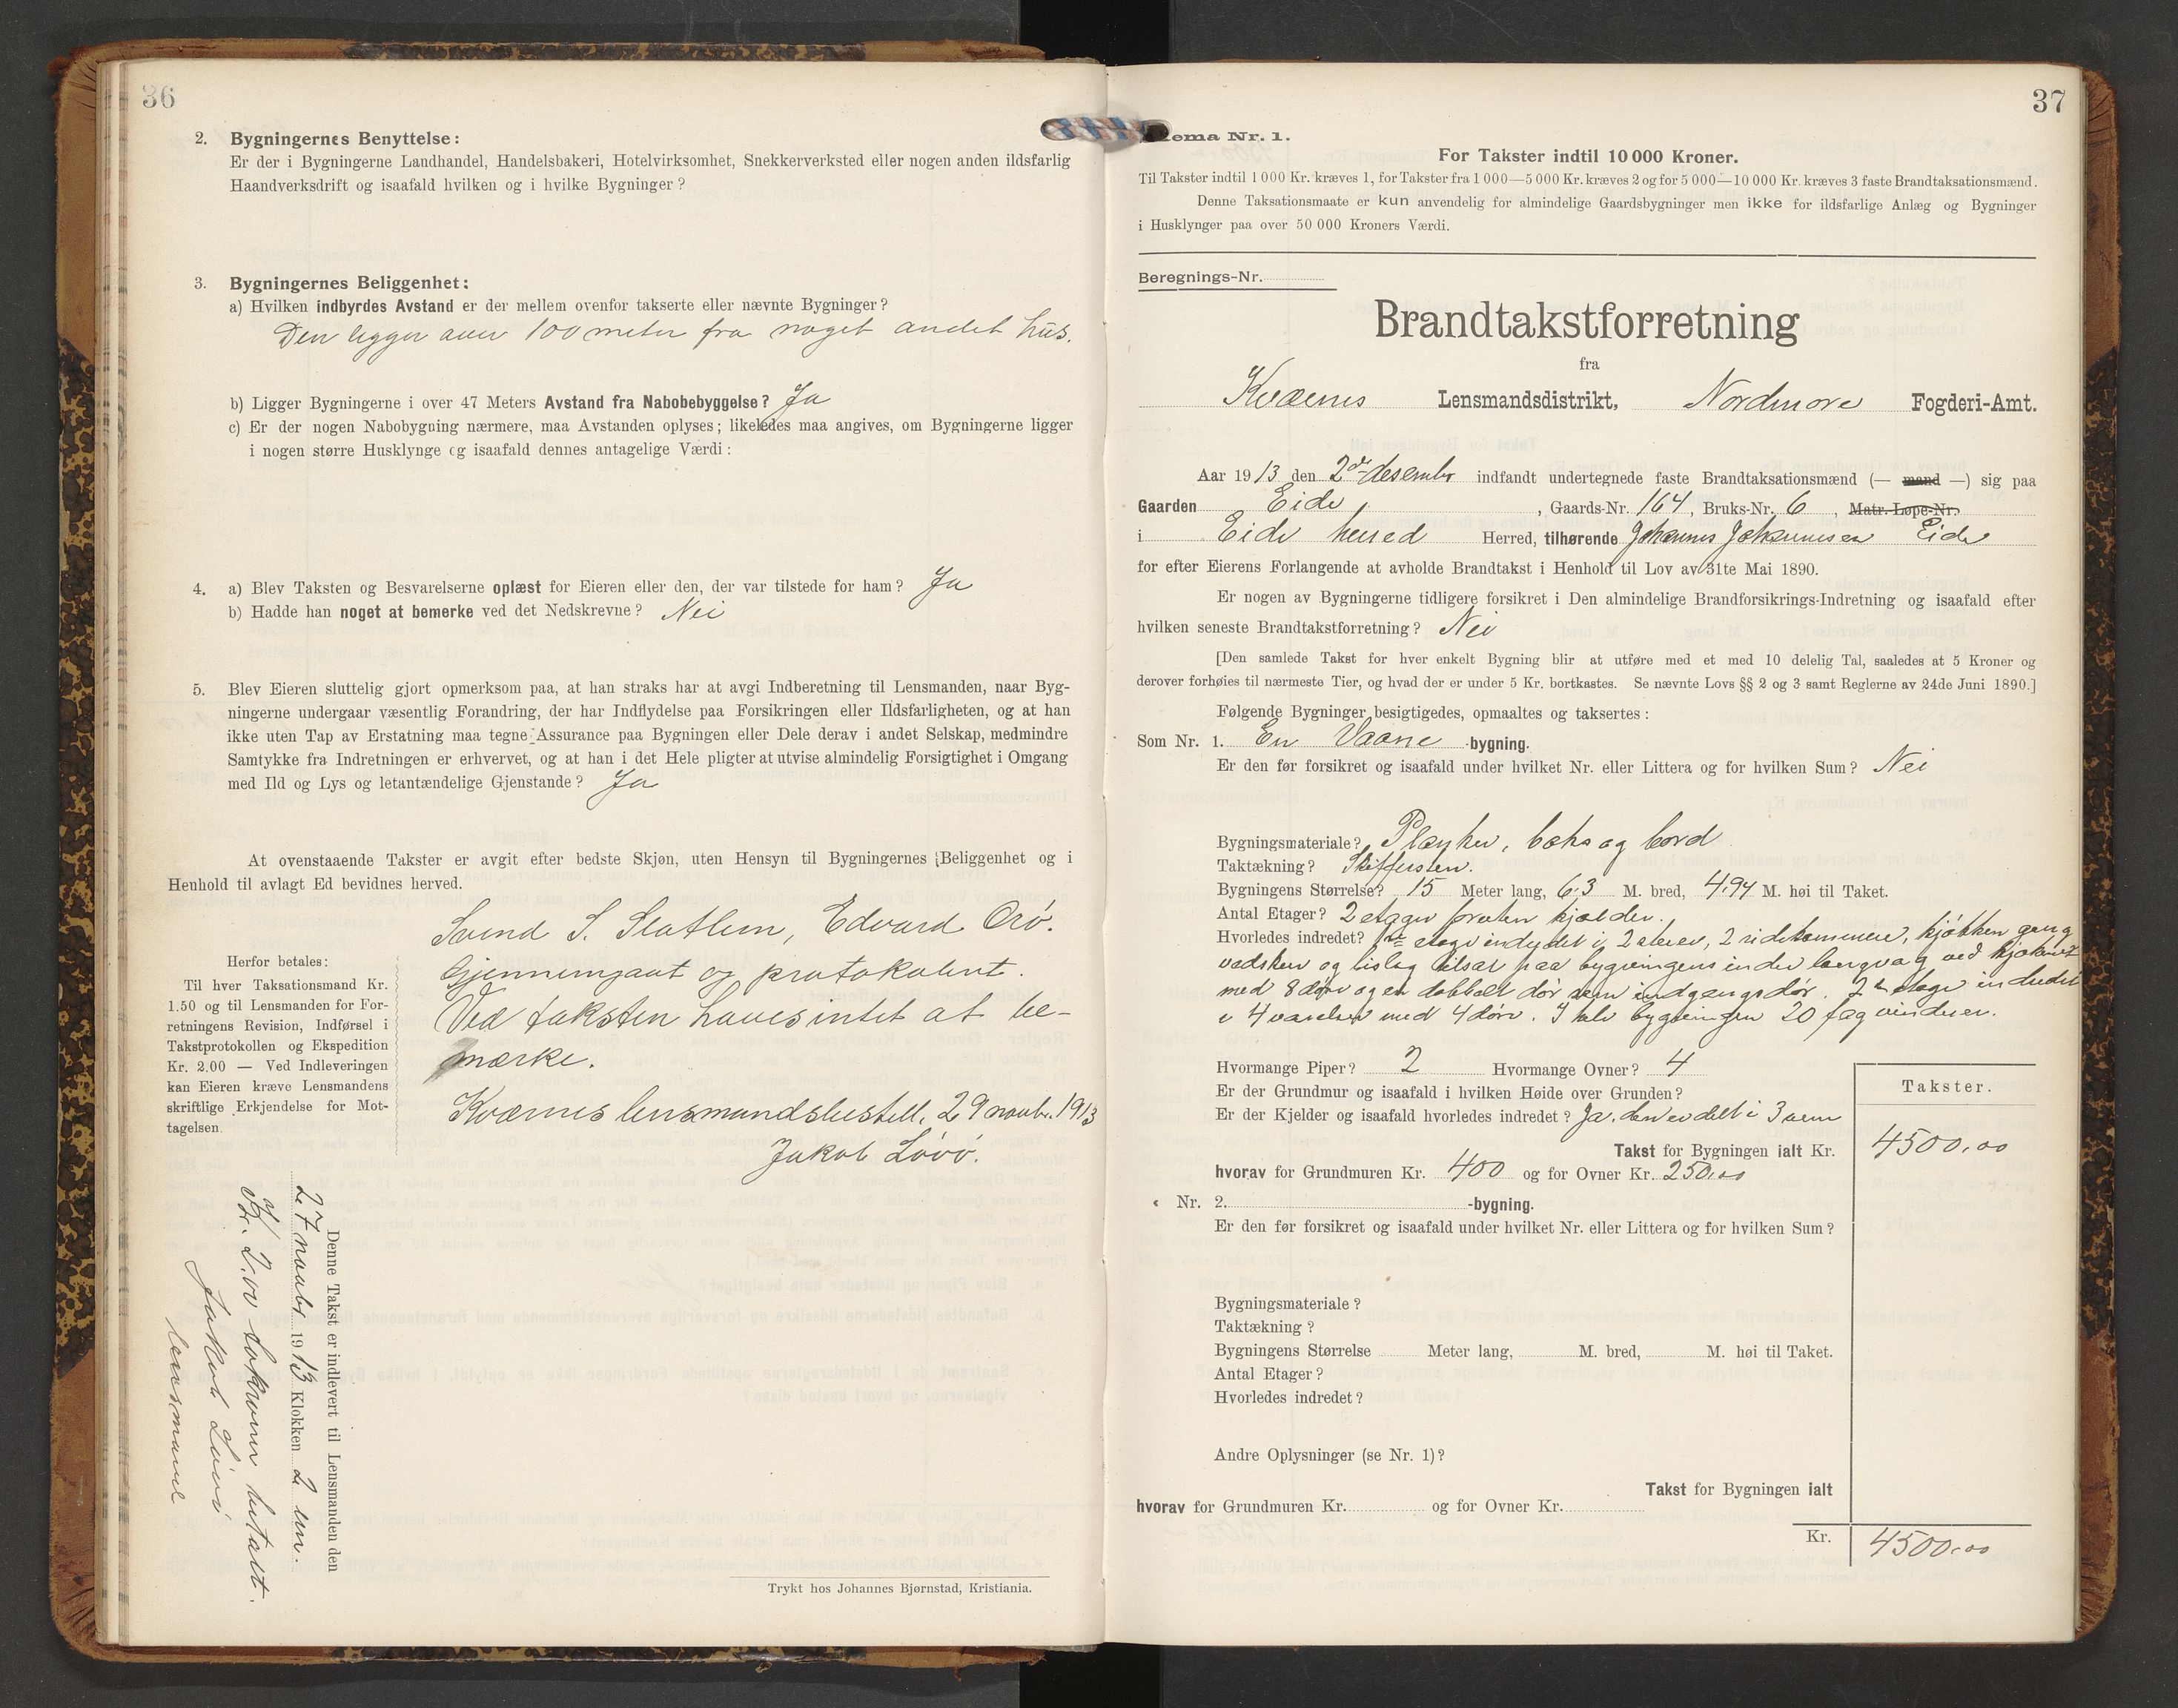 36
2. Bygningernes Benyttelse:
Er der i Bygningerne Landhandel, Handelsbakeri, Hotelvirksomhet, Snekkerverksted eller nogen anden ildsfarlig
Haandverksdrift og isaafald hvilken og i hvilke Bygninger?
3. Bygningernes Beliggenhet:
a) Hvilken indbyrdes Avstand er der mellem ovenfor takserte eller nævnte Bygninger?
Den ligger over 100 meter fra noget andet hus.
b) Ligger Bygningerne i over 47 Meters Avstand fra Nabobebyggelse? Ja
c) Er der nogen Nabobygning nærmere, maa Avstanden oplyses; likeledes maa angives, om Bygningerne ligger
i nogen større Husklynge og isaafald dennes antagelige Værdi:
4. a) Blev Taksten og Besvarelserne oplæst for Eieren eller den, der var tilstede for ham? Ja
b) Hadde han noget at bemerke ved det Nedskrevne? Nei
5. Blev Eieren sluttelig gjort opmerksom paa, at han straks har at avgi Indberetning til Lensmanden, naar Byg-
ningerne undergaar væsentlig Forandring, der har Indflydelse paa Forsikringen eller Ildsfarligheten, og at han
ikke uten Tap av Erstatning maa tegne Assurance paa Bygningen eller Dele derav i andet Selskap, medmindre
Samtykke fra Indretningen er erhvervet, og at han i det Hele pligter at utvise almindelig Forsigtighet i Omgang
med Ild og Lys og letantændelige Gjenstande? Ja
At ovenstaaende Takster er avgit efter bedste Skjøn, uten Hensyn til Bygningernes Beliggenhet og i
Henhold til avlagt Ed bevidnes herved.
Svend S. Slatlem, Edvard Orø.
Gjennemgaat og protokolert.
Ved taksten haves intet at be-
mærke.
Kværnes lensmandsbestill, 29 novbr. 1913
Jakob Løvø.
Herfor betales:
Til hver Taksationsmand Kr.
1.50 og til Lensmanden for For-
retningens Revision, Indførsel i
Takstprotokollen og Ekspedition
Kr. 2.00 — Ved Indleveringen
kan Eieren kræve Lensmandens
skriftlige Erkjendelse for Mot-
tagelsen.
Denne Takst er indlevert til Lensmanden den
27 novbr 1913 Klokken 2 em.
Kr. 2.00 to kroner betalt.
Jakob Løvø
lensmand
Trykt hos Johannes Bjørnstad, Kristiania.
37
ema Nr. 1.
For Takster indtil 10 000 Kroner.
Til Takster indtil 1 000 Kr. kræves 1, for Takster fra 1 000—5 000 Kr. kræves 2 og for 5 000—10 000 Kr. kræves 3 faste Brandtaksationsmænd.
Denne Taksationsmaate er kun anvendelig for almindelige Gaardsbygninger men ikke for ildsfarlige Anlæg og Bygninger
i Husklynger paa over 50 000 Kroners Værdi.
Beregnings-Nr.
Brandtakstforretning
fra
Kværnes Lensmandsdistrikt, Nordmøre Fogderi-Amt.
Aar 1913 den 2de desember indfandt undertegnede faste Brandtaksationsmænd (— mand —) sig paa
Gaarden Eide, Gaards-Nr. 164, Bruks-Nr. 6, Matr. Løpe-Nr.
i Eide herred Herred, tilhørende Johannes Johannesen Eide
for efter Eierens Forlangende at avholde Brandtakst i Henhold til Lov av 31te Mai 1890.
Er nogen av Bygningerne tidligere forsikret i Den almindelige Brandforsikrings-Indretning og isaafald efter
hvilken seneste Brandtakstforretning? Nei
[Den samlede Takst for hver enkelt Bygning blir at utføre med et med 10 delelig Tal, saaledes at 5 Kroner og
derover forhøies til nærmeste Tier, og hvad der er under 5 Kr. bortkastes. Se nævnte Lovs §§ 2 og 3 samt Reglerne av 24de Juni 1890.]
Følgende Bygninger besigtigedes, opmaaltes og taksertes:
Som Nr. 1. En Vaane -bygning.
Er den før forsikret og isaafald under hvilket Nr. eller Littera og for hvilken Sum? Nei
Bygningsmateriale? Planker, boks og bord
Taktækning? Skiffersten.
Bygningens Størrelse? 15 Meter lang, 6.3 M. bred, 4.94 M. høi til Taket.
Antal Etager? 2 etager foruten kjælder.
Hvorledes indredet? 1ste etage inddelt i 2 stuer, 2 sidekammere, kjøkken gang
vadsken og bislag tilsat paa bygningens indre langvæg ved kjøkenet
med 8 døre og en dobbelt dør som indgangsdør. 2en etage indredet
i 4 værelser med 4 døre. I hele bygningen 20 fag vinduer.
Hvormange Piper? 2 Hvormange Ovner? 4
Er der Grundmur og isaafald i hvilken Høide over Grunden?
Er der Kjelder og isaafald hvorledes indredet? Ja. den er delt i 3 rum
Takster.
Takst for Bygningen ialt Kr. 4500.00
hvorav for Grundmuren Kr. 400 og for Ovner Kr. 250.00
« Nr. 2. -bygning.
Er den før forsikret og isaafald under hvilket Nr. eller Littera og for hvilken Sum?
Bygningsmateriale?
Taktækning?
Bygningens Størrelse Meter lang, M. bred, M. høi til Taket.
Antal Etager?
Hvorledes indredet?
Andre Oplysninger (se Nr. 1)?
Takst for Bygningen ialt
hvorav for Grundmuren Kr. og for Ovner Kr.
Kr. 4500.00